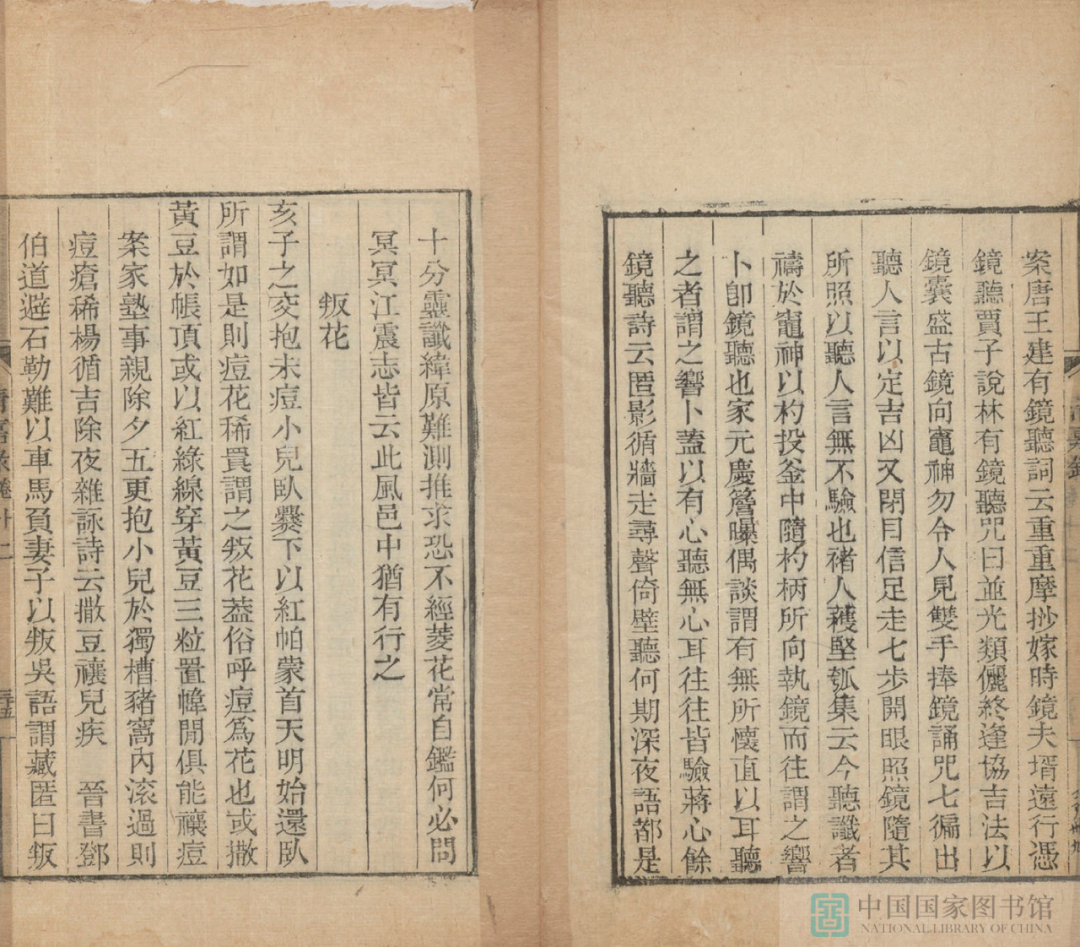 案唐王建有鏡聽詞云重重摩抄嫁時鏡夫壻遠行憑
鏡聽賈子說林有鏡聽咒曰並光類儷終逢協吉法以
鏡囊盛古鏡向竈神勿令人見雙手捧鏡誦咒七徧出
聽人言以定吉凶又閉目信足走七步開眼照鏡隨其
所照以聽人言無不驗也褚人穫堅瓠集云今聽讖者
禱於竈神以杓投釜中隨杓柄所向執鏡而往謂之響
卜卽鏡聽也家元慶簷曝偶談謂有無所懷直以耳聽
之者謂之響卜蓋以有心聽無心耳往往皆驗蔣心餘
鏡聽詩云匿影循牆走尋聲倚壁聽何期深夜語都是
十分靈讖緯原難測推求恐不經菱花常自鑑何必問
冥冥江震志皆云此風邑中猶有行之
叛花
亥子之交抱未痘小兒臥爨下以紅帕蒙首天明始還臥
所謂如是則痘花稀買謂之叛花葢俗呼痘爲花也或撒
黃豆於帳頂或以紅綠線穿黃豆三粒置幃閒俱能禳痘
案家塾事親除夕五更抱小兒於獨槽豬窩內滚過則
痘瘡稀楊循吉除夜雜詠詩云撒豆禳兒疾　晉書鄧
伯道避石勒難以車馬負妻子以叛吳語謂藏匿曰叛
中国国家图书馆
NATIONAL LIBRARY OF CHINA